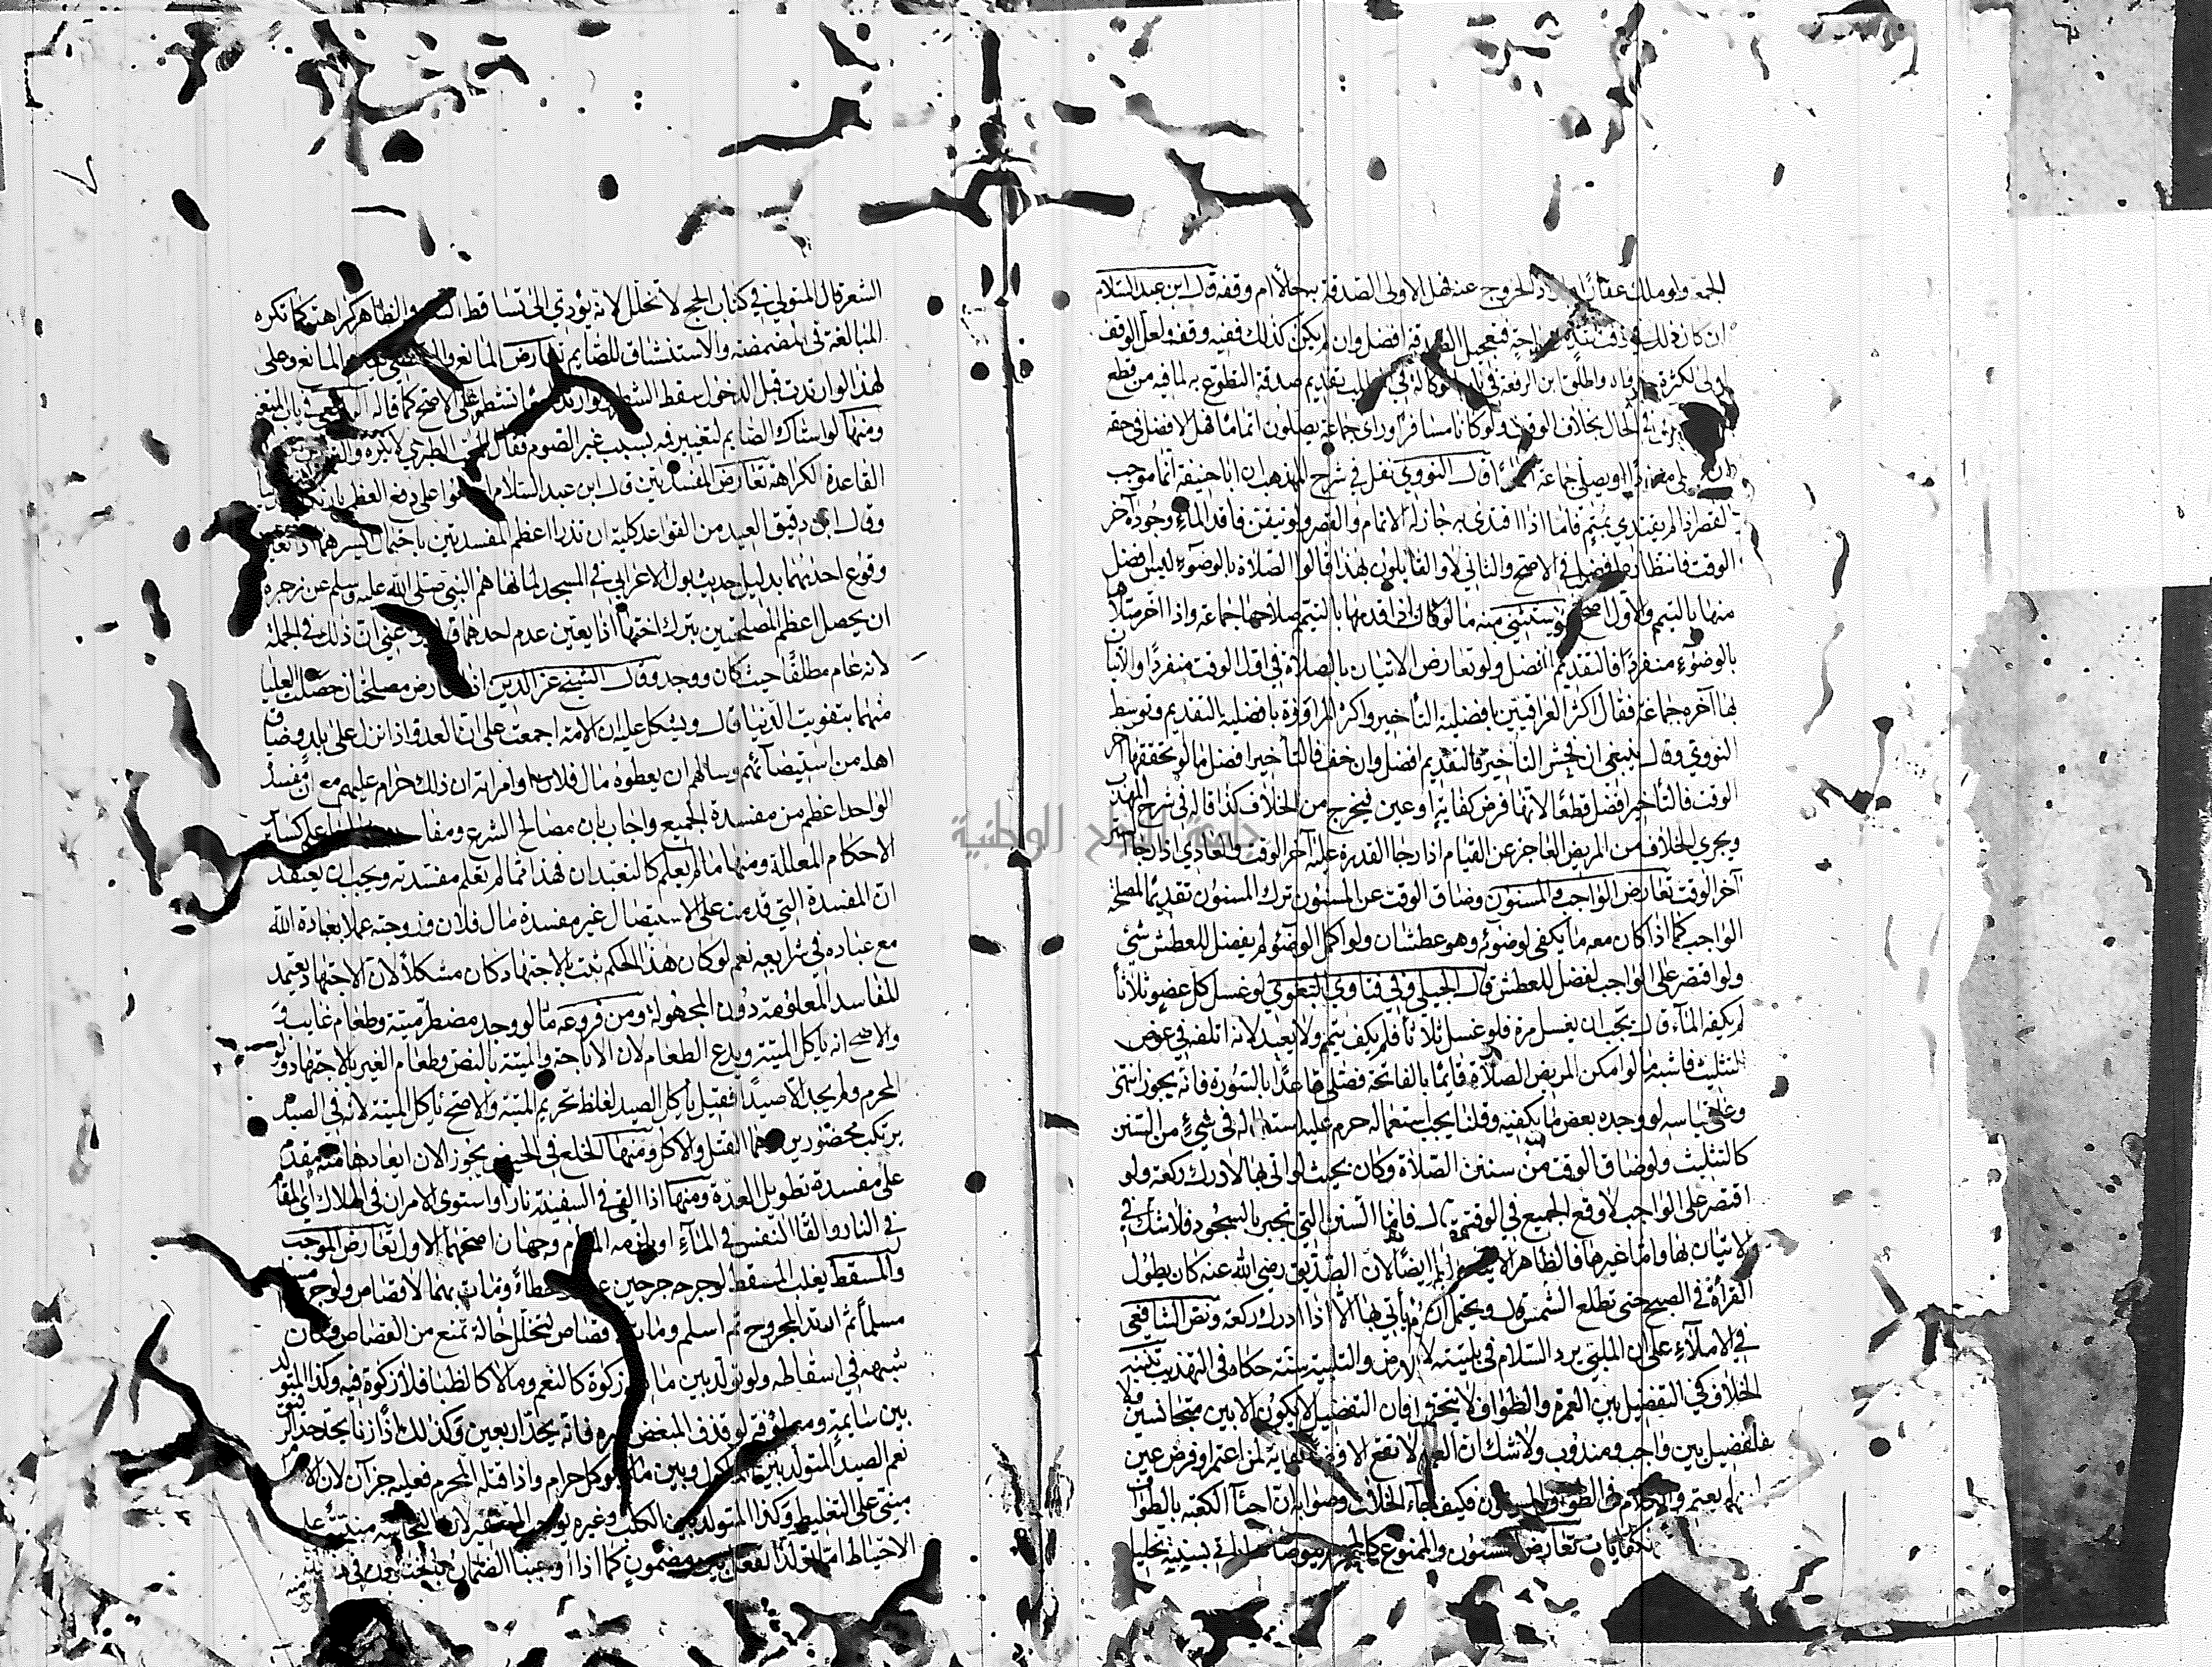 الجمعة ولو ملك عقارا الخروج عنه فهل الاولى الصدقة به حالا ام وقفه قال ابن عبد السلام
ان كان ذلك في وقت فتعجيل الصدقة افضل وان لم يكن كذلك ففيه وقفة ولعل الوقف
اولى لكثرة واطلق ابن الرفعة في باب الوكالة في تقديم صدقة التطوع به لما فيه من قطع
في الحال بخلاف الوقف ولو كانا مسافرا وراى جماعة يصلون اتماما فهل الافضل في حقه
ان او يصلي جماعة قال النووي نقل في شرح المهذب ان ابا حنيفة انما يوجب
القصر اذا لم يقتدي بمتم فاما اذا اقتدى به جاز له الاتمام والقصر ولو تيقن فاقد الماء وجوده آخر
الوقت فانتظاره افضل في الاصح والثاني لا والقايلون بهذا قالوا الصلاة بالوضوء ليس افضل
منها بالتيمم والاول ويستثنى منه ما لو كان اذا قدمها بالتيمم صلاحها جماعة واذا اخر صلاها
بالوضوء منفردا فالتقديم افضل ولو تعارض الاتيان بالصلاة في اول الوقت منفردا والاتيان
بها آخره جماعة فقال اكثر العراقيين بافضلية التأخير واكثر المراوزة بافضلية التقديم وتوسط
النووي وقال ينبغي ان فحش التأخير فالتقديم افضل وان خف فالتأخير افضل ما لو تحققها آخر
الوقت فالتأخير افضل قطعا لانها فرض كفاية او عين فيخرج من الخلاف كذا قاله في شرح المهذب
ويجري الخلاف من المريض العاجز عن القيام اذا رجا القدرة عليه آخر الوقت والعاري اذا رجا السترة
آخر الوقت تعارض الواجب والمسنون وضاق الوقت عن المسنون ترك المسنون تقديما لمصلحة
الواجب كما اذا كان معه ما يكفي لوضوئه وهو عطشان ولو اكمل الوضوء لم يفضل للعطش شيء
ولو اقتصر على الواجب لفضل للعطش قال الجيلي وفي فتاوى البغوي لو غسل كل عضو ثلاثا
لم يكفه الماء قال يجب ان يغسل مرة فلو غسل ثلاثا فلم يكف يتيمم ولا يعيد لانه اتلفه في عوض
التثليث فاشبه ما لو امكن المريض الصلاة قايما بالفاتحة فصلى قاعدا بالسورة فانه يجوز انتهى
وعلى قياسه لو وجد بعض ما يكفيه وقلنا يجب استعماله حرم عليه استعماله في شيء من السنن
كالتثليث ولو ضاق الوقت من سنن الصلاة وكان بحيث لو اتى بها لا درك ركعة ولو
اقتصر على الواجب لاوقع الجميع في الوقت قال فاما السنن التي تجبر بالسجود فلا شك في
الاتيان بها واما غيرها فالظاهر الاتيان بها ايضا لان الصديق رضي الله عنه كان يطول
القرأة في الصبح حتى تطلع الشمس قال ويحتمل ان لا يأتي بها الا اذا ادرك ركعة ونص الشافعي
في الاملاء على ان الملبي يرد السلام في تلبيته لان الرد فرض والتلبية سنة حكاه في التهذيب تنبيه
الخلاف في التفضيل بين العمرة والطواف لا يتحقق فان التفضيل لا يكون الا بين متجانسين فلا
تفضيل بين واجب ومندوب ولا شك ان العمرة لا تقع الا فرض كفاية لمن اعتمر او فرض عين
لم يعتمر والكلام في الطواف المسنون فكيف جاء الخلاف وصوابه ان احيا الكعبة بالطواف
كفايات تعارض المسنون والممنوع كالمحرم

الشعر قال المتولي في كتاب الحج لا تخلل لانه يؤدي الى تساقط الشعر والظاهر كراهته كما تكره
المبالغة في المضمضة والاستنشاق للصايم تعارض المانع والمقتضى يقدم المانع وعلى
لهذا لو ارتدت قبل الدخول سقط الشطر ولو ارتدا تشطر على الاصح كما قاله في باب المتعة
ومنها لو استاك الصايم لتغيير فيه بسبب غير الصوم فقال المحب الطبري لا يكره
القاعدة الكراهة تعارض المفسدتين قال ابن عبد السلام اجمعوا على دفع العظمى
وقال ابن دقيق العيد من القواعد كلية ان تدرا اعظم المفسدتين باحتمال ايسرهما اذا تعين
وقوع احدهما بدليل حديث بول الاعرابي في المسجد لما نهاهم النبي صلى الله عليه وسلم عن زجره
ان يحصل اعظم المصلحتين بترك اخفها اذا يتعين عدم احدهما اعني ان ذلك في الجملة
لانه عام مطلقا حيث كان ووجد وقال الشيخ عز الدين اذا تعارض مصلحتان حصلت العليا
منهما بتفويت الدنيا قال ويشكل عليه ان الامة اجمعت على ان العدو اذا نزل على بلد وضاق
اهله من استيصآئهم وسالهم ان يعطوه مال فلان او امراته ان ذلك حرام عليهم مع ان مفسدة
الواحد اعظم من مفسدة الجميع واجاب بان مصالح الشرع كسائر
الاحكام المعللة ومنها ما لم يعلم كالتعبدات فهذا مما لم تعلم مفسدته ويجب ان يعتقد
ان المفسدة التي قدمت على الاستيصال غير مفسدة مال فلان وزوجته عملا بعبادة الله
مع عباده في شرايعه نعم لو كان هذا الحكم ثبت بالاجتهاد كان مشكلا لان الاجتهاد يعتمد
المفاسد المعلومة دون المجهولة ومن فروعه ما لو وجد مضطر ميتة وطعام غايب
والاصح انه ياكل الميتة ويدع الطعام لان الاباحة والميتة بالنص وطعام الغير بالاجتهاد ولو
المحرم ولم يجد الا صيدا فقيل ياكل الصيد لغلظ تحريم الميتة والاصح ياكل الميتة لانه في الصيد
يرتكب محضورين هما القتل والاكل ومنها الخلع في الحيض يجوز لان ابعادها منه مقدم
على مفسدة تطويل العدة ومنها اذا القى في السفينة نارا واستوى الامران في الهلاك اي المقام
في النار والقا النفس في الماء او يلزمه المقام وجهان اصحهما الاول تعارض الموجب
والمسقط يغلب المسقط لو جرحه جرحين عمدا وخطأ ومات بهما لا قصاص ولو جرح مسلم
مسلما ثم ارتد المجروح ثم اسلم ومات فلا قصاص لتخلل حالة تمنع من القصاص فكان
شبهة في اسقاطه ولو تولد بين ما زكوة كالنعم وما لا كالظبا فلا زكوة فيه وكذا المتولد
بين سايمة ومعلوفة لو قذف المبعض فانه يحد اربعين وكذلك اذا زنا يحد حد الرقيق
نعم الصيد المتولد بين ماكول وبين ما لا يوكل حرام واذا قتله المحرم فعليه جزآن لان
مبنى على التغليط وكذا المتولد بين الكلب وغيره يوجب التعفير لان النجاسة مبنية على
الاحتياط كما اذا اوجبنا الضمان
جامعة النجاح الوطنية